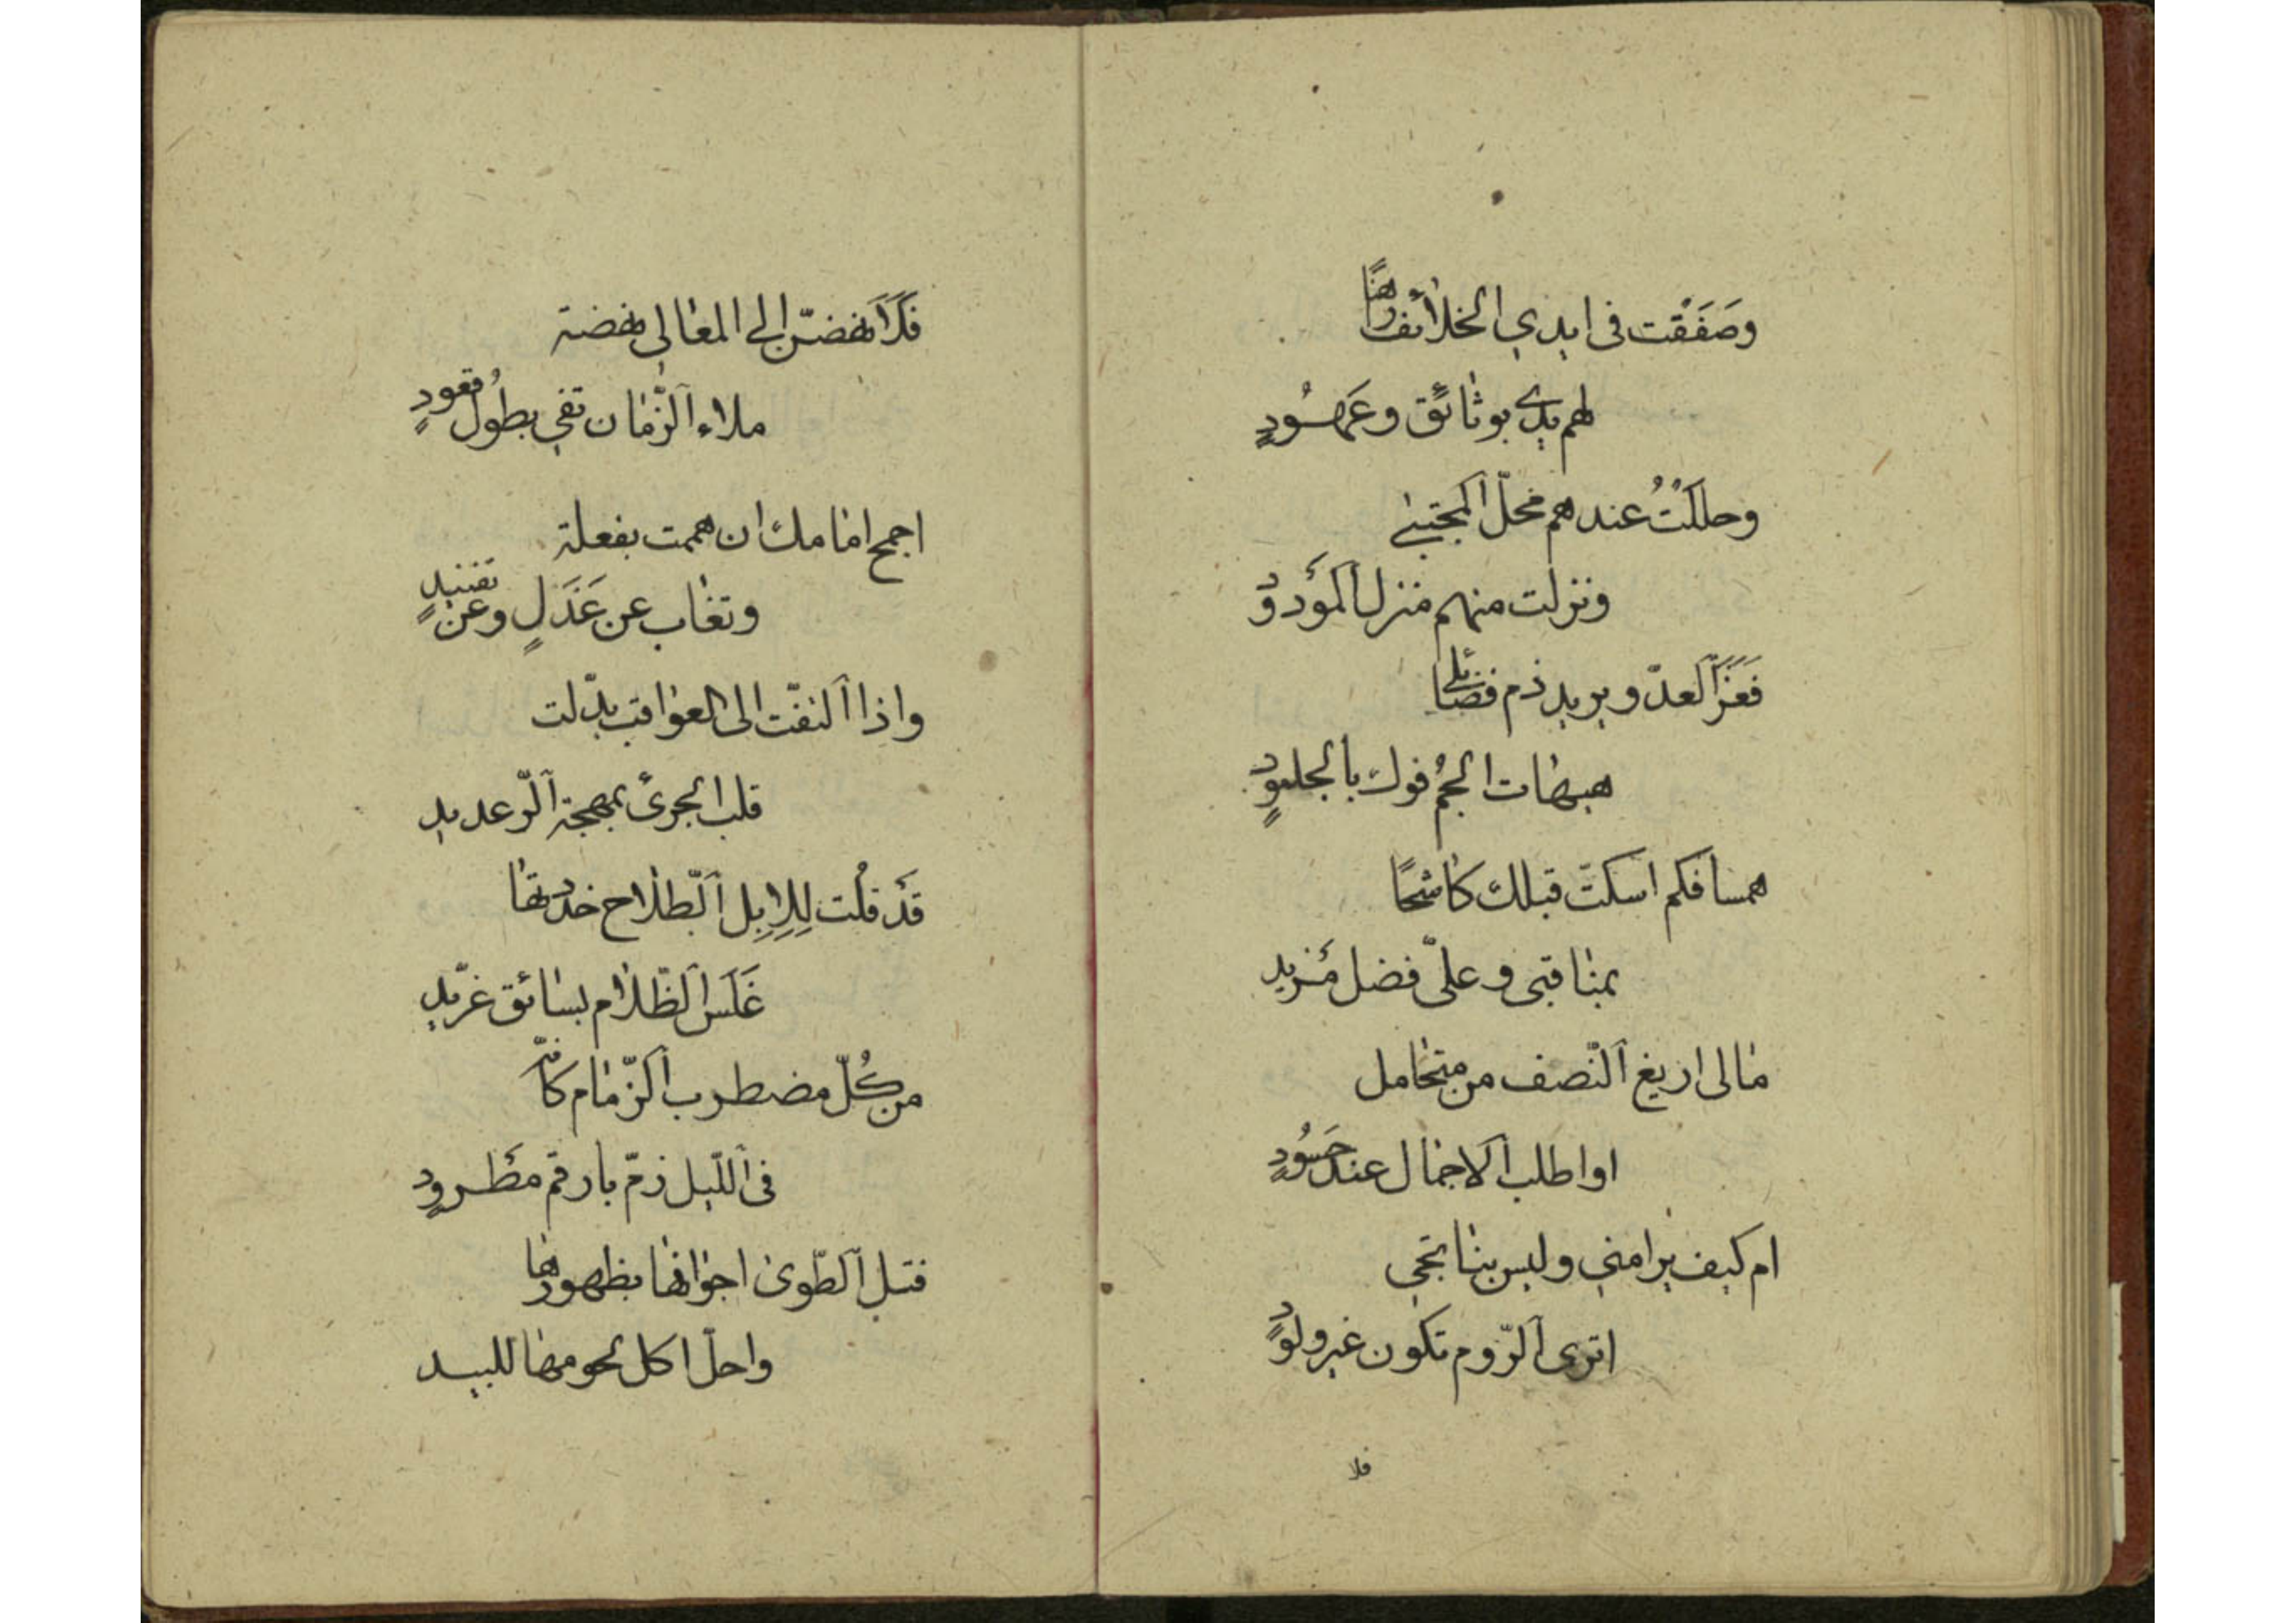 وصَفَقْت فى ايدي الخلائف راهنًا
لهم يدى بوثائق وعَهُودٍ
وحللَتُ عندهم محلّ المجتبىٰ
ونزلت منهم منزل المَودودٍ
فَغَرَ العدّو يريد ذم فضائلى
هيهات الجُم فوك بالجلمودٍ
همسا فكم اسكتّ قبلك كاشحًا
بمناقبى وعلىّ فضل مَزيد
مالى اريغ النّصف من متحامل
او اطلب الاجمال عند حَسُودٍ
ام كيف يرامنى وليس بناتجى
اترى الرّوم تكون غير ولودٍ
فلا
فَلَاَنهضنّ الى المعالى نهضة
ملاء الزّمان تفى بطول قُعودٍ
اجمح امامك ان هممت بفعلة
وتغاب عن عَذَلٍ وعن تفنيدٍ
واذا التفّت الى العواقب بدّلت
قلب الجرئ بمهجة الرّعديد
قَد قُلت لِلِابِل الطّلاح خدوتها
غَلَسَ الظّلام بسائق غرّيد
من كُلّ مضطرب الزّمام كانّه
فى اللّيل زمّ بارقم مَطرودٍ
فتل الطّوىٰ اجوافها بظهورها
واحلّ اكل لحومها للبيد